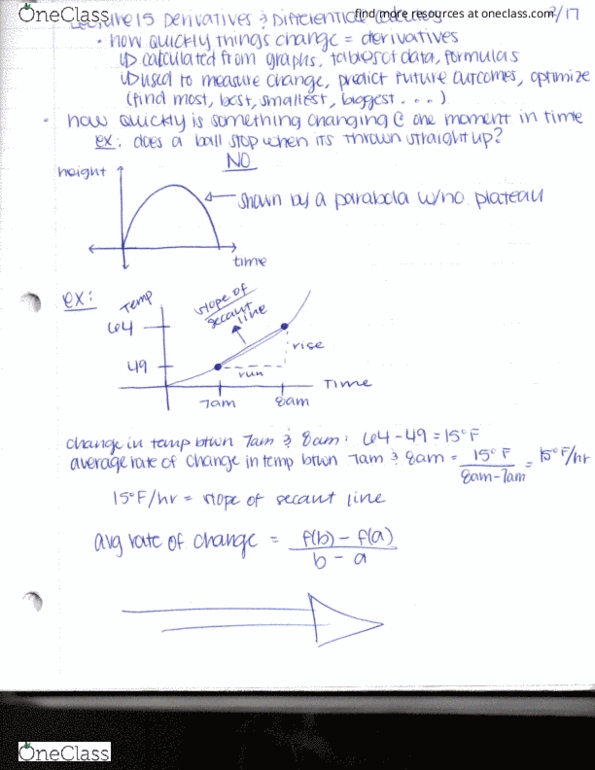 OneClass
find more resources at oneclass.com
Lecture 15 Derivatives & Differential 2/17
• how quickly things change = derivatives
↳ calculated from graphs, tables of data, formulas
↳ used to measure change, predict future outcomes, optimize
(find most, best, smallest, biggest . . . )
• how quickly is something changing @ one moment in time
ex: does a ball stop when its thrown straight up?
NO
height
shown by a parabola w/no plateau
time
ex:
Temp
slope of
secant
line
64
rise
49
run
Time
7am
8am
change in temp btwn 7am & 8am: 64-49 = 15°F
average rate of change in temp btwn 7am & 8am = 15°F / 8am-7am = 15°F/hr
15°F/hr = slope of secant line
avg rate of change = f(b) - f(a) / b - a
OneClass